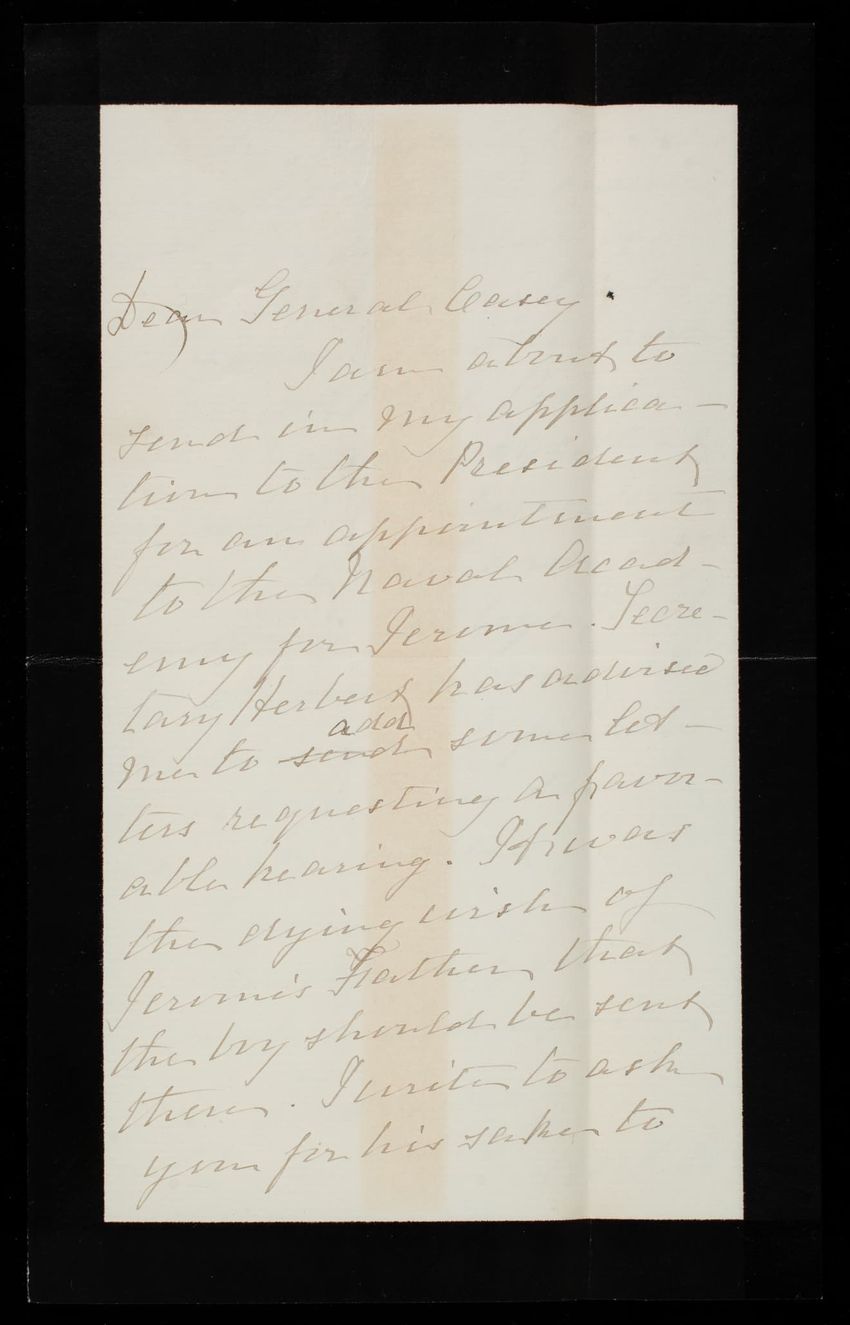 Dear General Casey
I am about to
send in my applica-
tion to the President
for an appointment
to the Naval Acad-
emy for Jerome. Secre-
tary Herbert has advised
me to send add some let-
ters requesting a favor-
able hearing. It was
the dying wish of
Jerome's Father that
the boy should be sent
there. I write to ask
you for his sake to